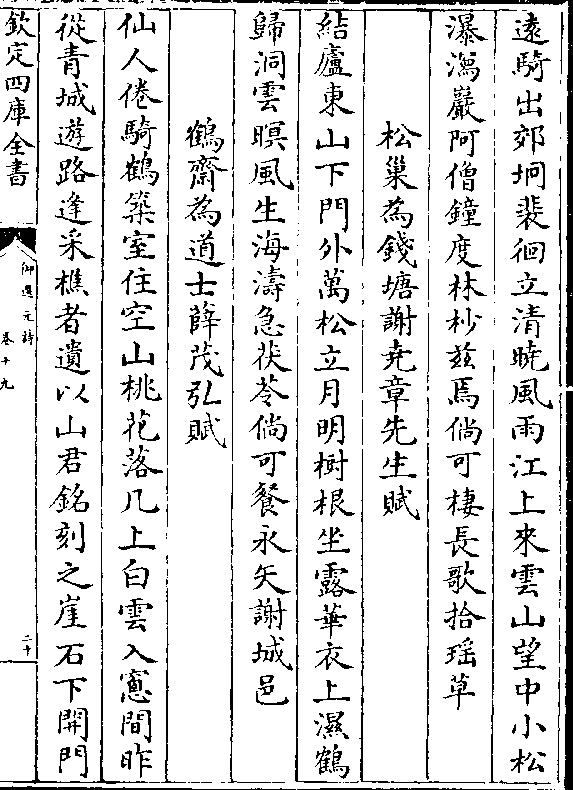 遠騎出郊坰裴徊立清曉風雨江上來雲山望中小松
瀑瀉巖阿僧鐘度林杪玆焉倘可棲長歌拾瑶草
松巢為錢塘謝尭章先生賦
結廬東山下門外萬松立月明樹根坐露華衣上濕鶴
歸洞雲暝風生海濤急茯苓倘可餐永矢謝城邑
鶴齋為道士薛茂弘賦
仙人倦騎鶴築室住空山桃花落几上白雲入窻間昨
從青城遊路逢采樵者遺以山君銘刻之崖石下開門
欽定四庫全書
御選元詩
卷十九
二十